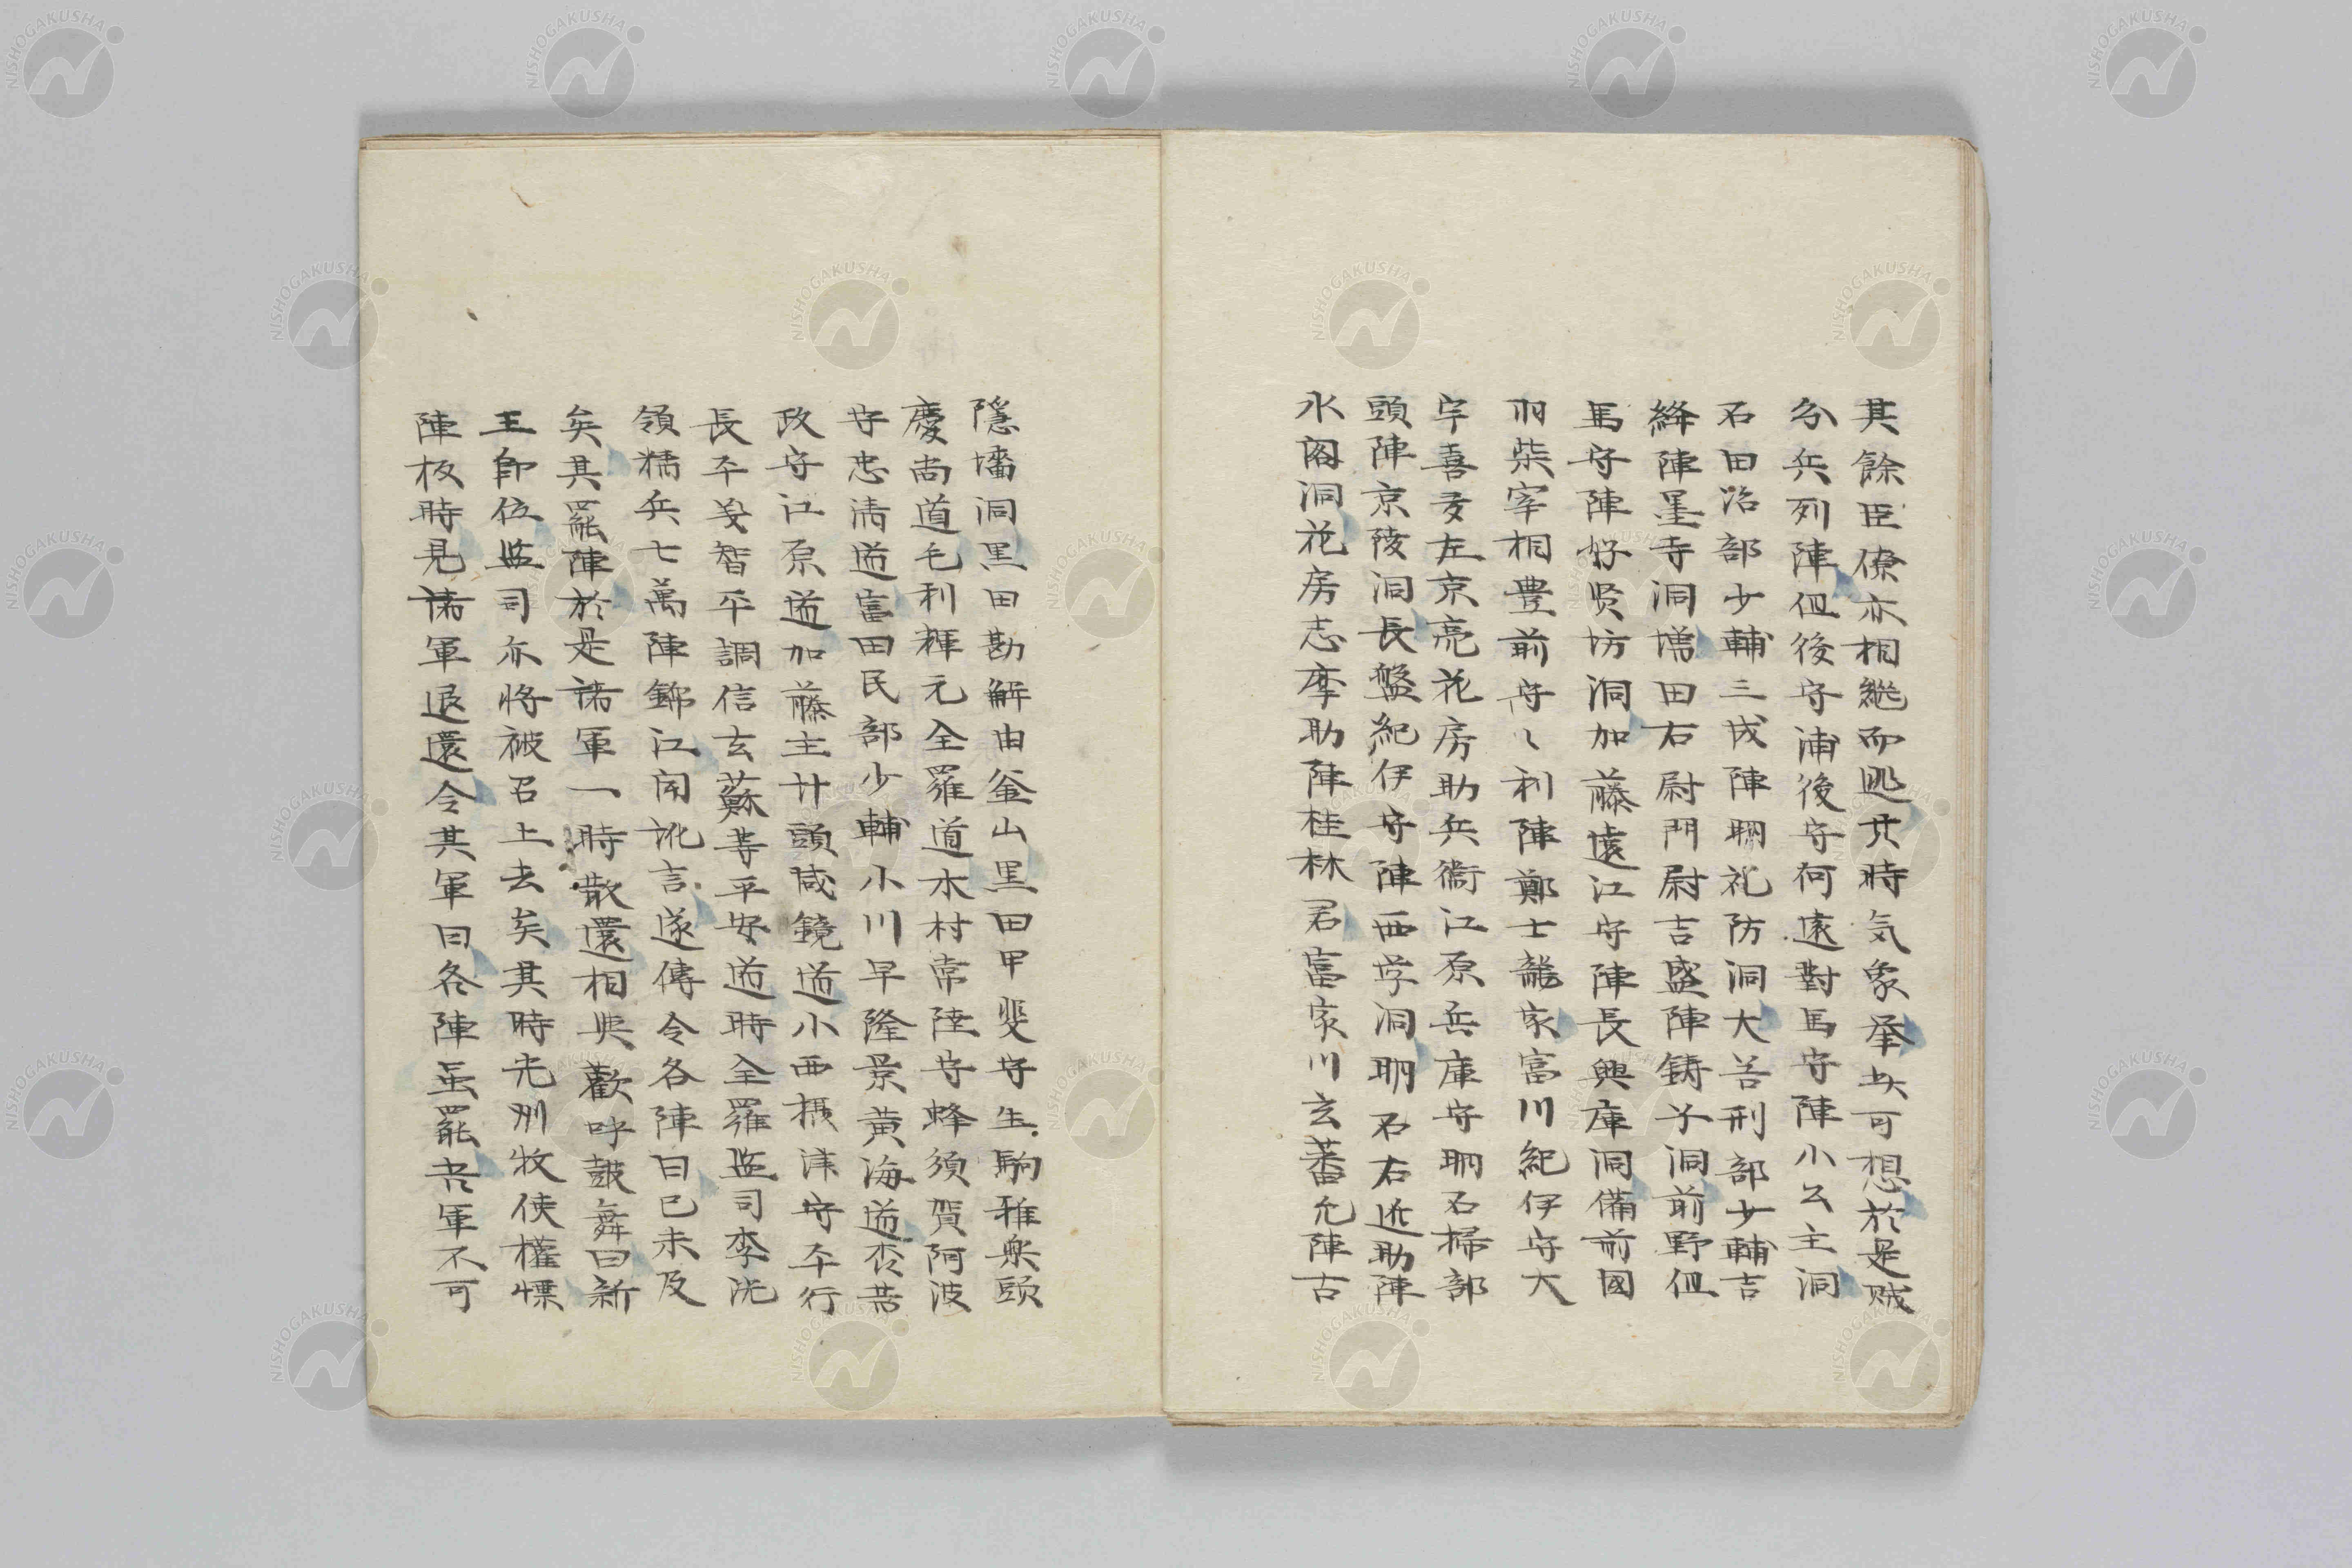 其餘臣僚亦相繼而逃其時気象举此可想於是賊
分兵列陣但後守浦後守何遠對馬守陣小公主洞
石田治部少輔三成陣明礼防洞大谷刑部少輔吉
絳陣墨寺洞増田右尉門尉吉盛陣鋳子洞前野但
馬守陣好賢坊洞加藤遠江守陣長興庫洞備前國
羽柴宰相豊前守〻利陣鄭士龍家富川紀伊守大
宇喜多左京亮花房助兵衞江原兵庫守明石掃部
頭陣京陵洞長盤紀伊守陣西学洞明石右近助陣
水閣洞花房志摩助陣桂林君富家川玄蕃允陣古
隱墻洞黒田勘解由釜山黒田甲斐守生駒雅楽頭
慶尚道毛利輝元全羅道木村常陸守蜂須賀阿波
守忠清道富田民部少輔小川早隆景黄海道
政守江原道加藤主廾頭咸鏡道小西摂津守平行
長平義智平調信玄蘇等平安道時全羅監司李洸
領精兵七萬陣錦江聞訛言遂傳令各陣曰已未及
矣其罷陣於是諸軍一時散還相與歡呼鼓舞曰新
王卽位監司亦將被召上去矣其時光州牧使權慄
陣板時見諸軍退還令其軍曰各陣虽罷吾軍不可
NISHOGAKUSHA